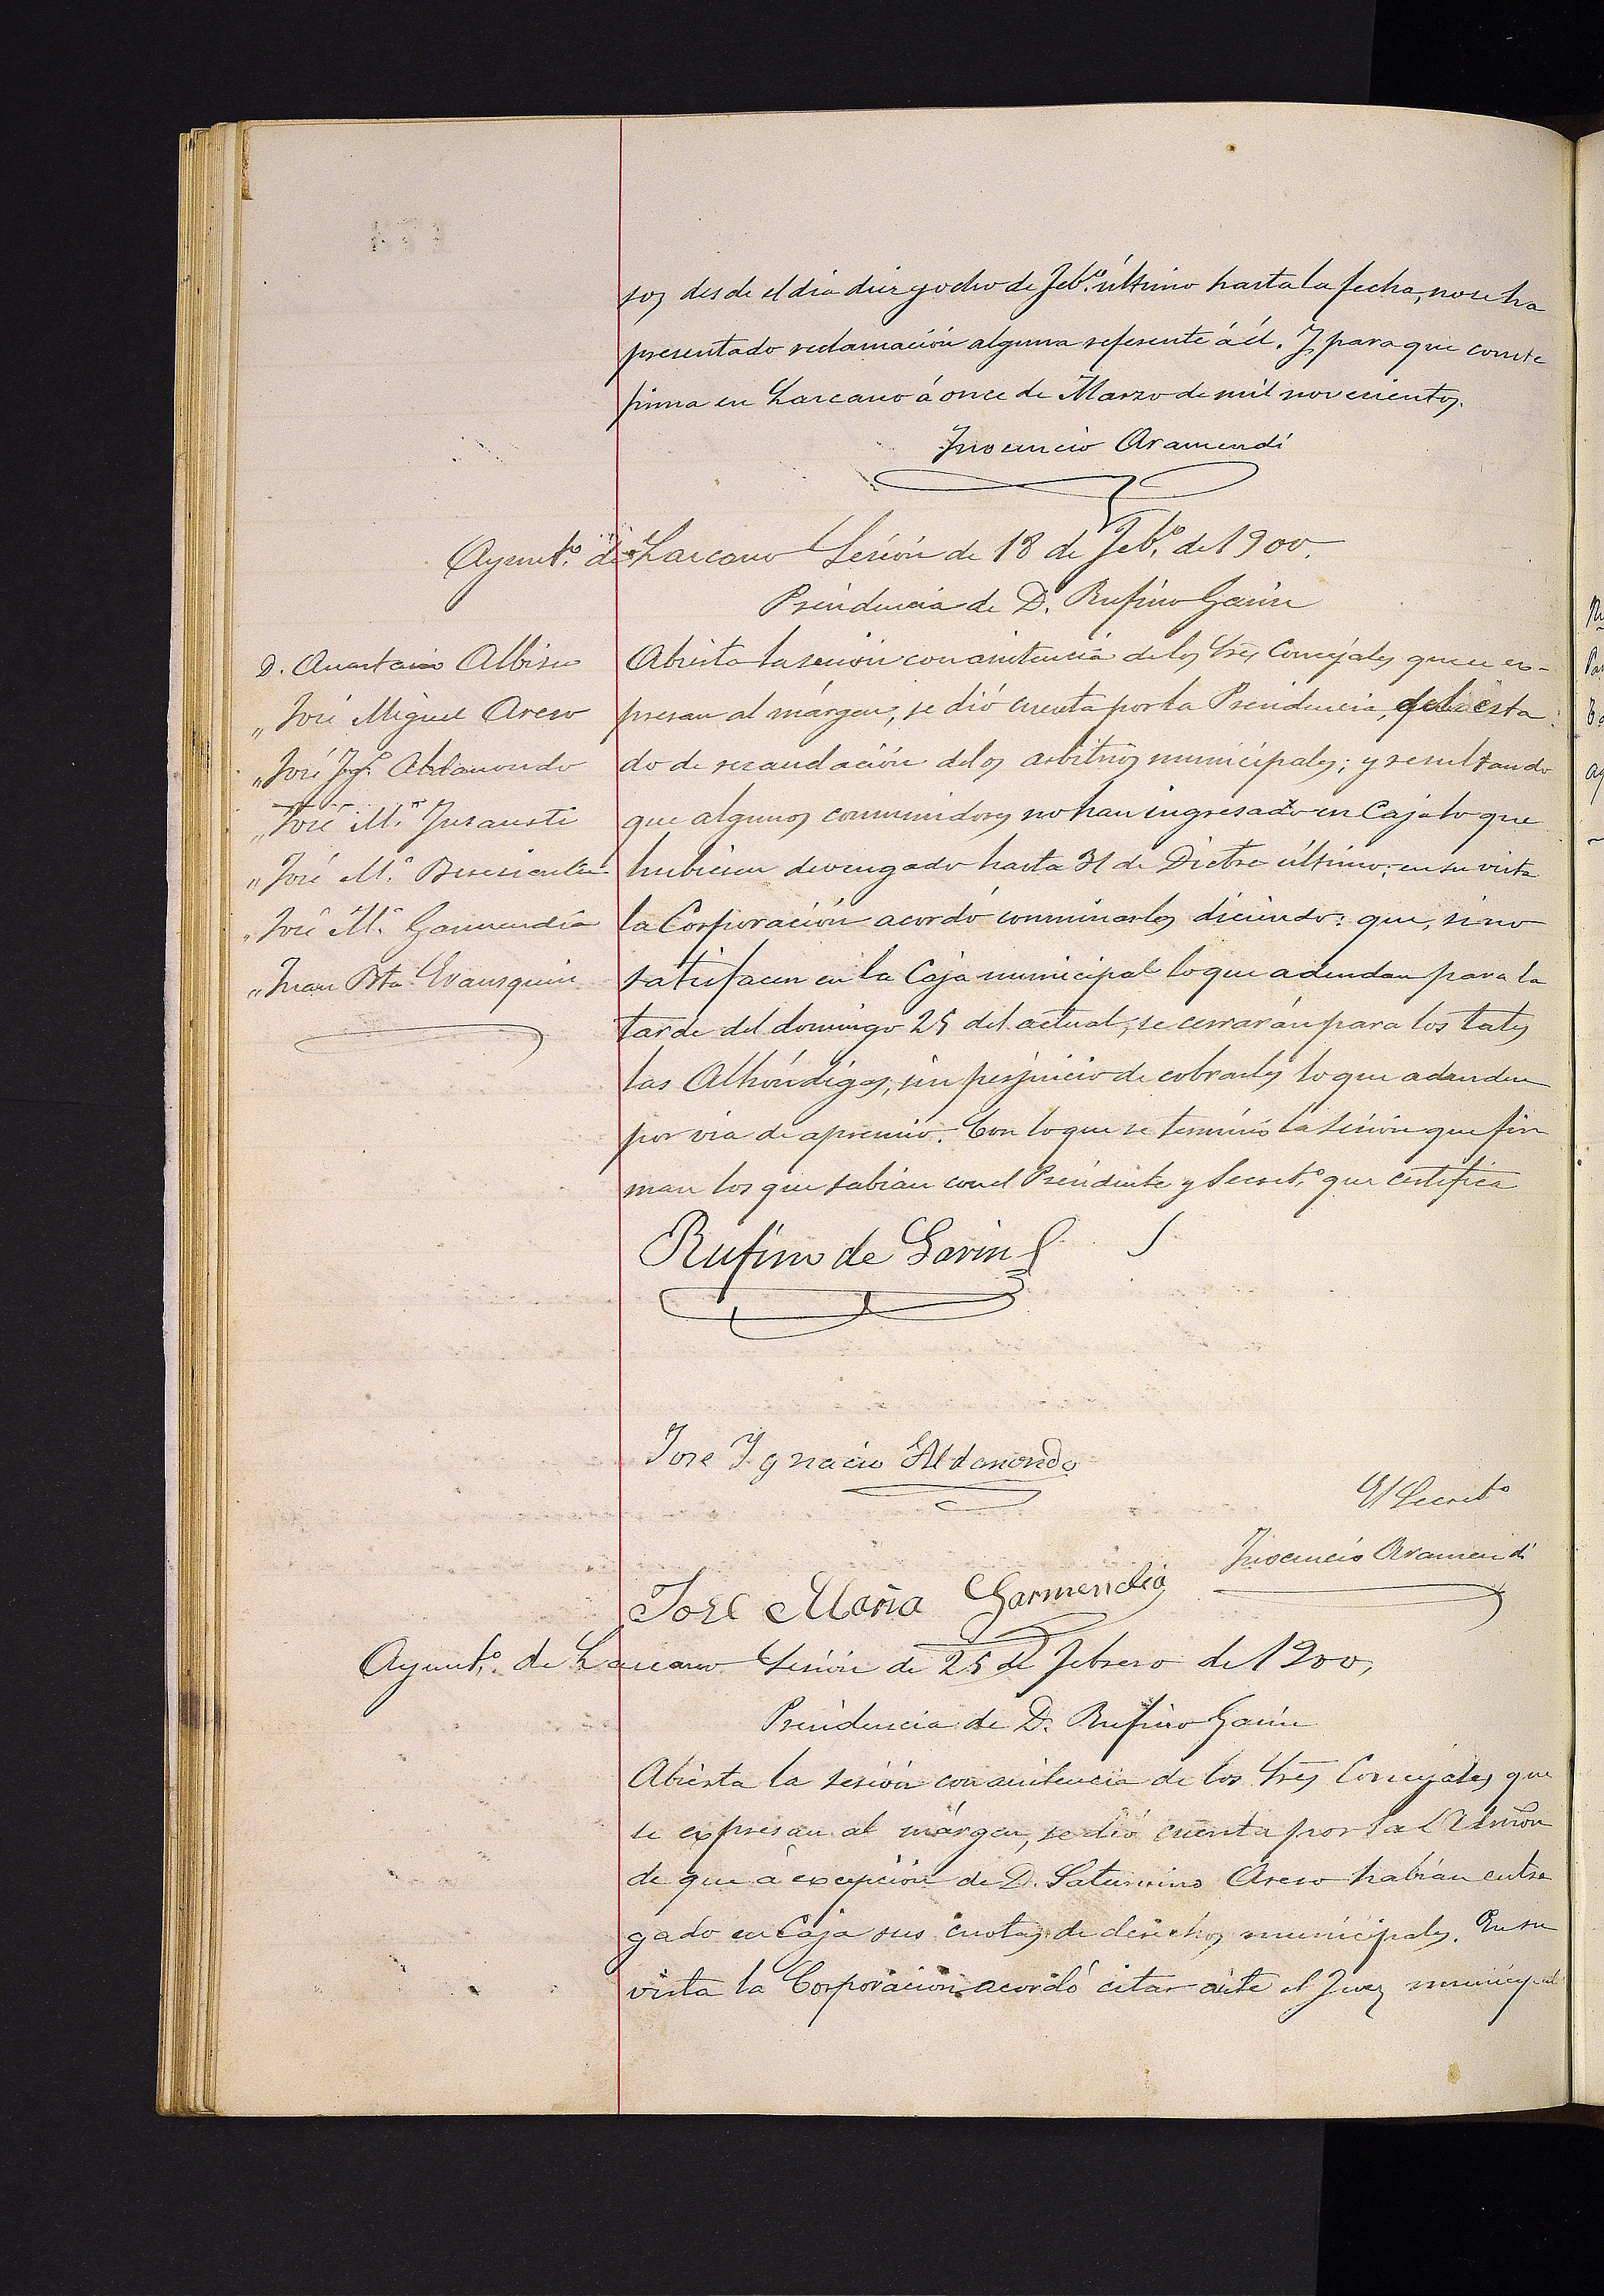 tos desde el dia diez y ocho de Feb.º último hasta la fecha, no se ha
presentado reclamación alguna referente á él. Y para que conste
firma en Lazcano á once de Marzo de mil novecientos.
Inocencio Aramendi
Ayunt.º de Lazcano Sesión de 18 de Feb.º de 1900.
Presidencia de D. Rufino Garin
D. Anastasio Albisu
„ José Miguel Areso
„ José Ig.º Aldanondo
„ José M.ª Insausti
„ José M.ª
„ José M.ª Garmendia
„ Juan Bta.
Abierta la sesión con asistencia de los Sres Concejales que se es-
presan al márgen, se dió cuenta por la Presidencia, del esta
do de recaudación de los arbitrios municipales; y resultando
que algunos consumidores no han ingresado en Caja lo que
hubiesen devengado hasta 31 de Dicbre último; en su vista
la Corporación acordó conminarles diciendo: que, si no
satisfacen en la Caja municipal lo que adeudan para la
tarde del domingo 25 del actual, se cerrarán para los tales
las Alhóndigas, sin perjuicio de cobrarles lo que adeuden
por via de apremio. Con lo que se terminó la sesión que fir
man los que sabian con el Presidente y Secret.º que certifica
Rufino de Garin
Jose Ignacio Aldanondo
El Secret.º
Inocencio Aramendi
José Maria Garmendia
Ayunt.º de Lazcano Sesión de 25 de Febrero de 1900,
Presidencia de D. Rufino Garin
Abierta la sesión con asistencia de los Sres Concejales que
se expresan al márgen, se dió cuenta por la Admón
de que á excepción de D. Saturnino Areso habian entre
gado en Caja sus cuotas de derechos municipales. En su
vista la Corporación acordó citar ante el Juez municipal